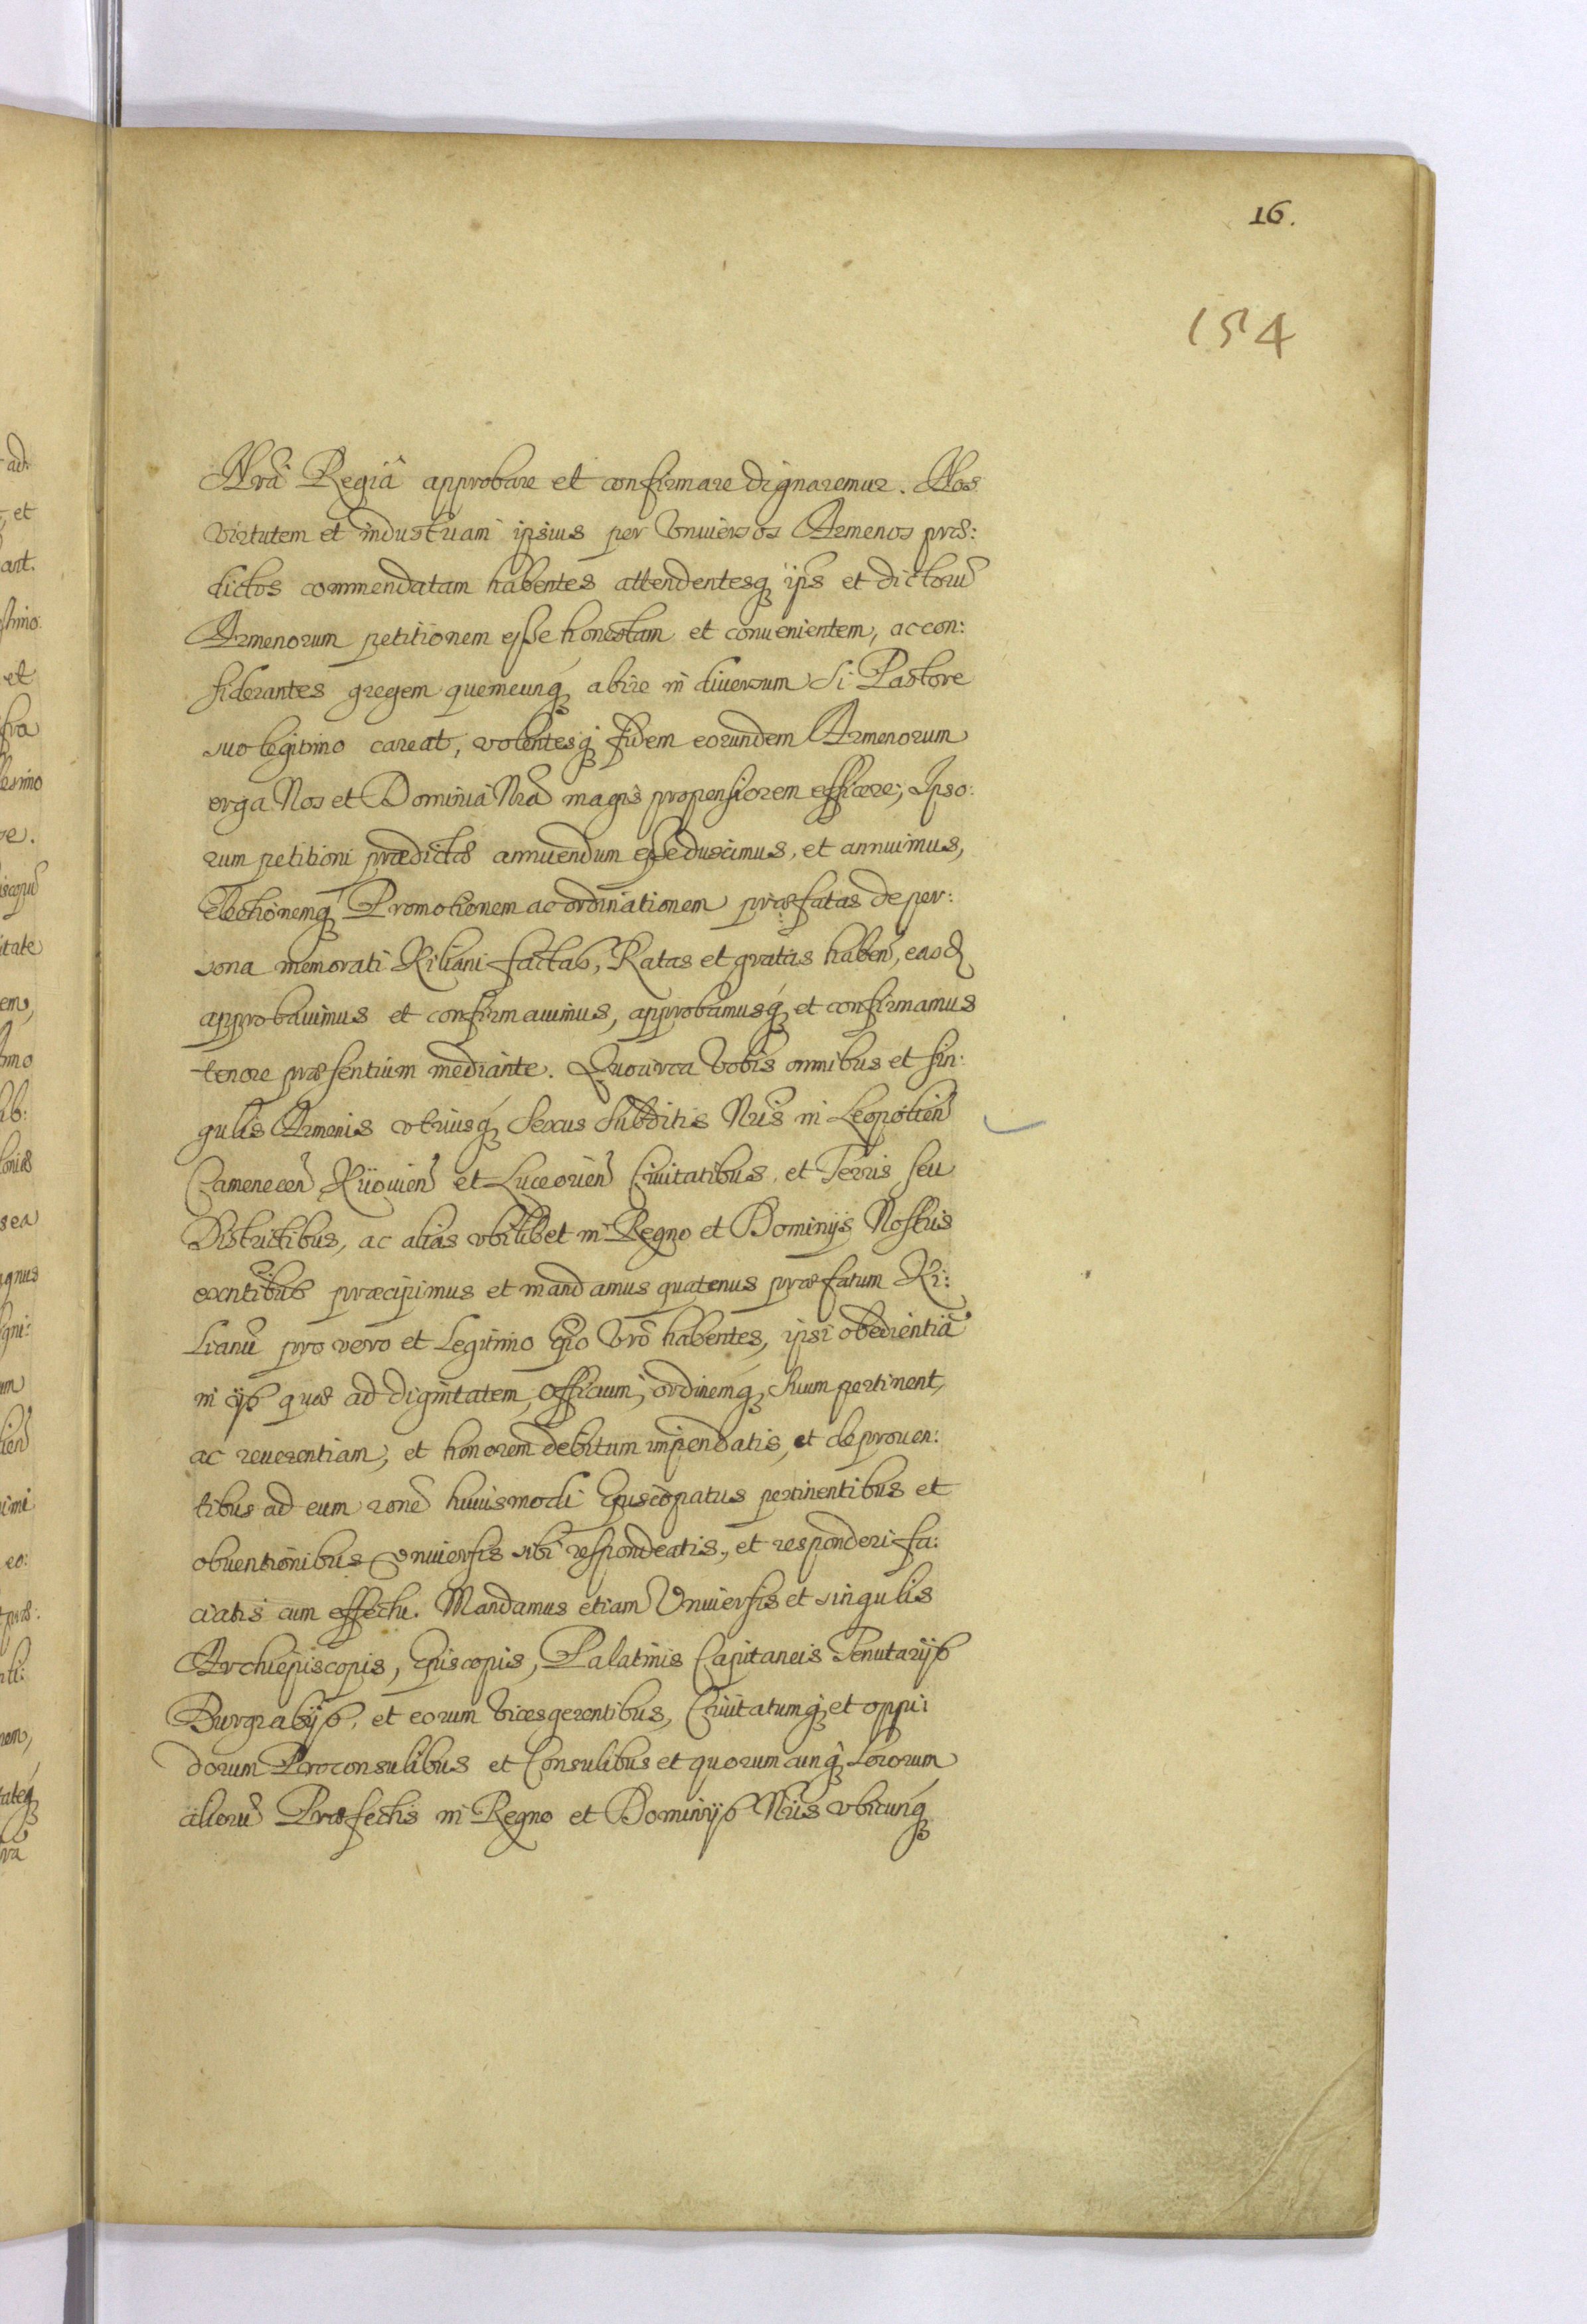 16.
154
Nrã Regiâ approbare et confirmare dignaremur. Nos
virtutem et industriam ipsius per Vniuersos Armenos præ:
dictos commendatam habentes attendentesq₃ ips̃ et dictorũ
Armenorum petitionem esse honestam et conuenientem, ac con:
siderantes gregem quemcunq₃ abire in diuersum si Pastore
suo legitimo careat, volentesq₃ fidem eorundem Armenorum
erga Nos et Dominia Nrã magis propensiorem efficere, Ipso:
rum petitioni prædictæ annuendum esse duximus, et annuimus,
Electionemq₃ Promotionem ac ordinationem præfatas de per:
sona memorati Kiliani factas, Ratas et gratas habeñ, easd
approbauimus et confirmauimus, approbamusq₃ et confirmamus
tenore præsentium mediante. Quocirca Vobis omnibus et sin:
gulis Armenis vtriusq₃ Sexus Subditis Nrĩs in Leopolieñ
Cameneceñ Kijouieñ et Luceorieñ Ciuitatibus, et Terris seu
Districtibus, ac alias vbilibet in Regno et Dominijs Nostris
exñtibus præcipimus et mandamus quatenus præfatum Ki:
lianũ pro vero et Legitimo Ep̃o Vrõ habentes, ipsi obedientiã
in ijs quæ ad dignitatem, officium, ordinemq₃ suum pertinent,
ac reuerentiam, et honorem debitum impendatis, et de prouen:
tibus ad eum rõne huiusmodi Episcopatus pertinentibus et
obuentionibus Vniuersis sibi respondeatis, et responderi fa:
ciatis cum effectu. Mandamus etiam Vniuersis et singulis
Archiepiscopis, Episcopis, Palatinis Capitaneis Tenutarijs
Burgrabijs, et eorum Vicesgerentibus, Ciuitatumq₃ et oppi:
dorum Proconsulibus et Consulibus et quorumcunq₃ Locorum
aliorũ Præfectis in Regno et Dominijs Nrĩs vbicunq₃